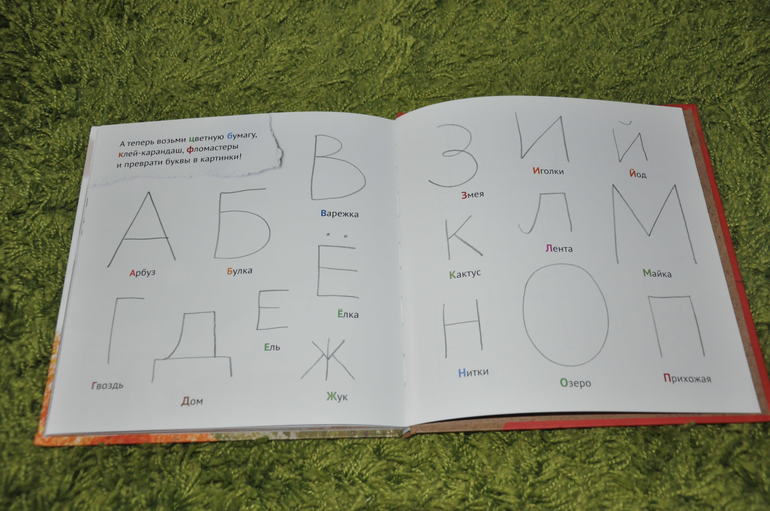 А теперь возьми цветную бумагу,
клей-карандаш, фломастеры
и преврати буквы в картинки!
А
Арбуз
Б
Булка
В
Варежка
Г
Гвоздь
Д
Дом
Е
Ель
Ё
Ёлка
Ж
Жук
З
Змея
И
Иголки
Й
Йод
К
Кактус
Л
Лента
М
Майка
Н
Нитки
О
Озеро
П
Прихожая